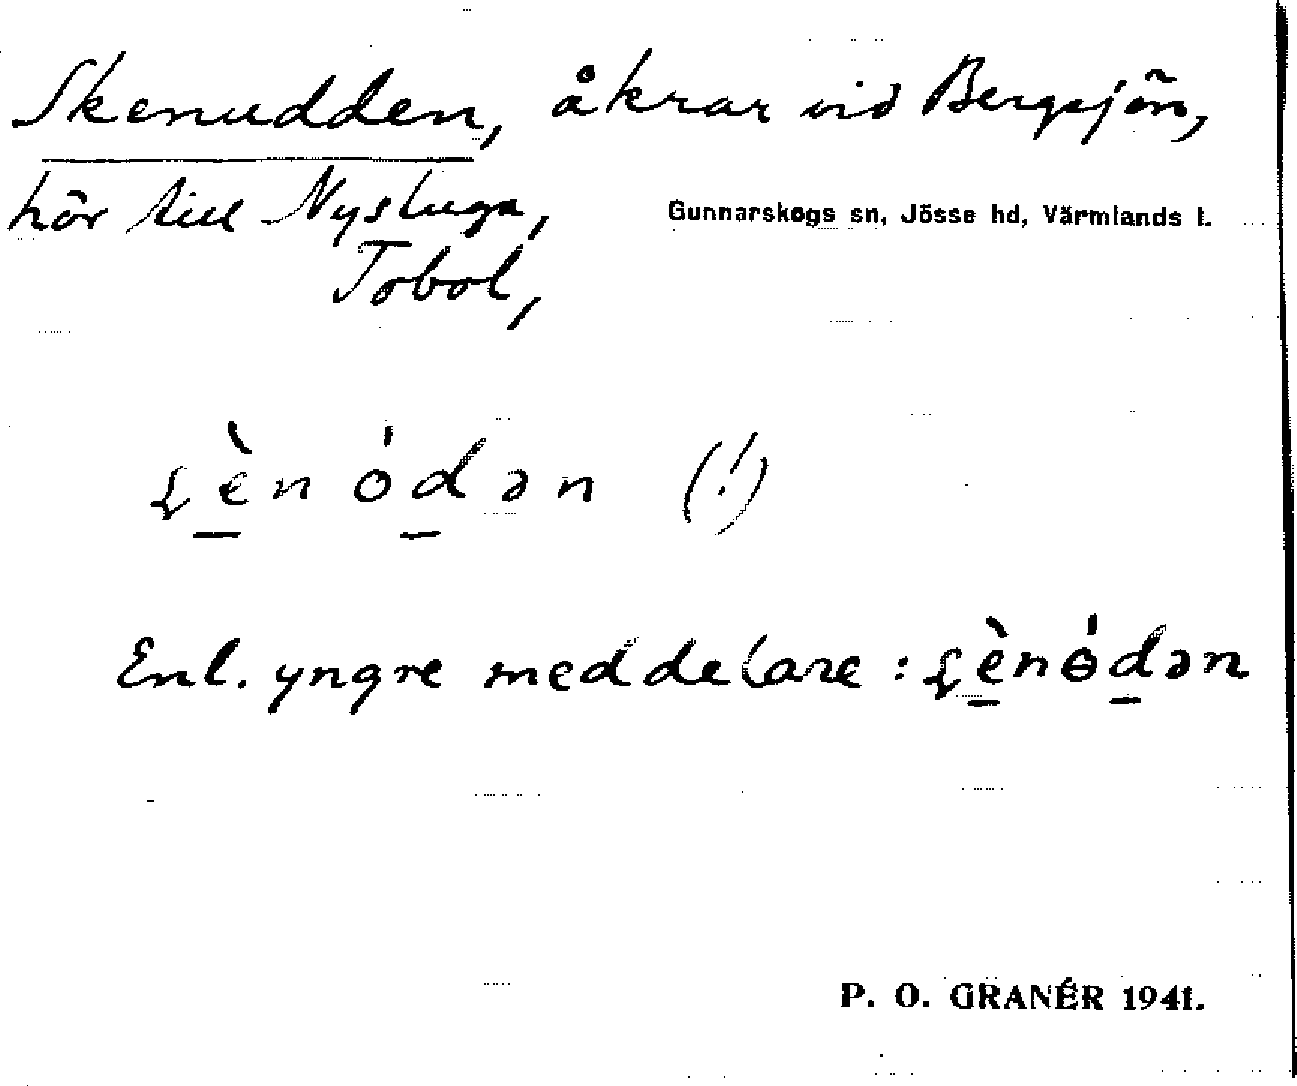 Skenudden, åkrar vid Bergsjön,
hör till Nystuga,
Gunnarskogs sn, Jösse hd, Värmlands l.
Tobol,
(!)
Enl. yngre meddelare :
P. O. GRANÉR 1941.